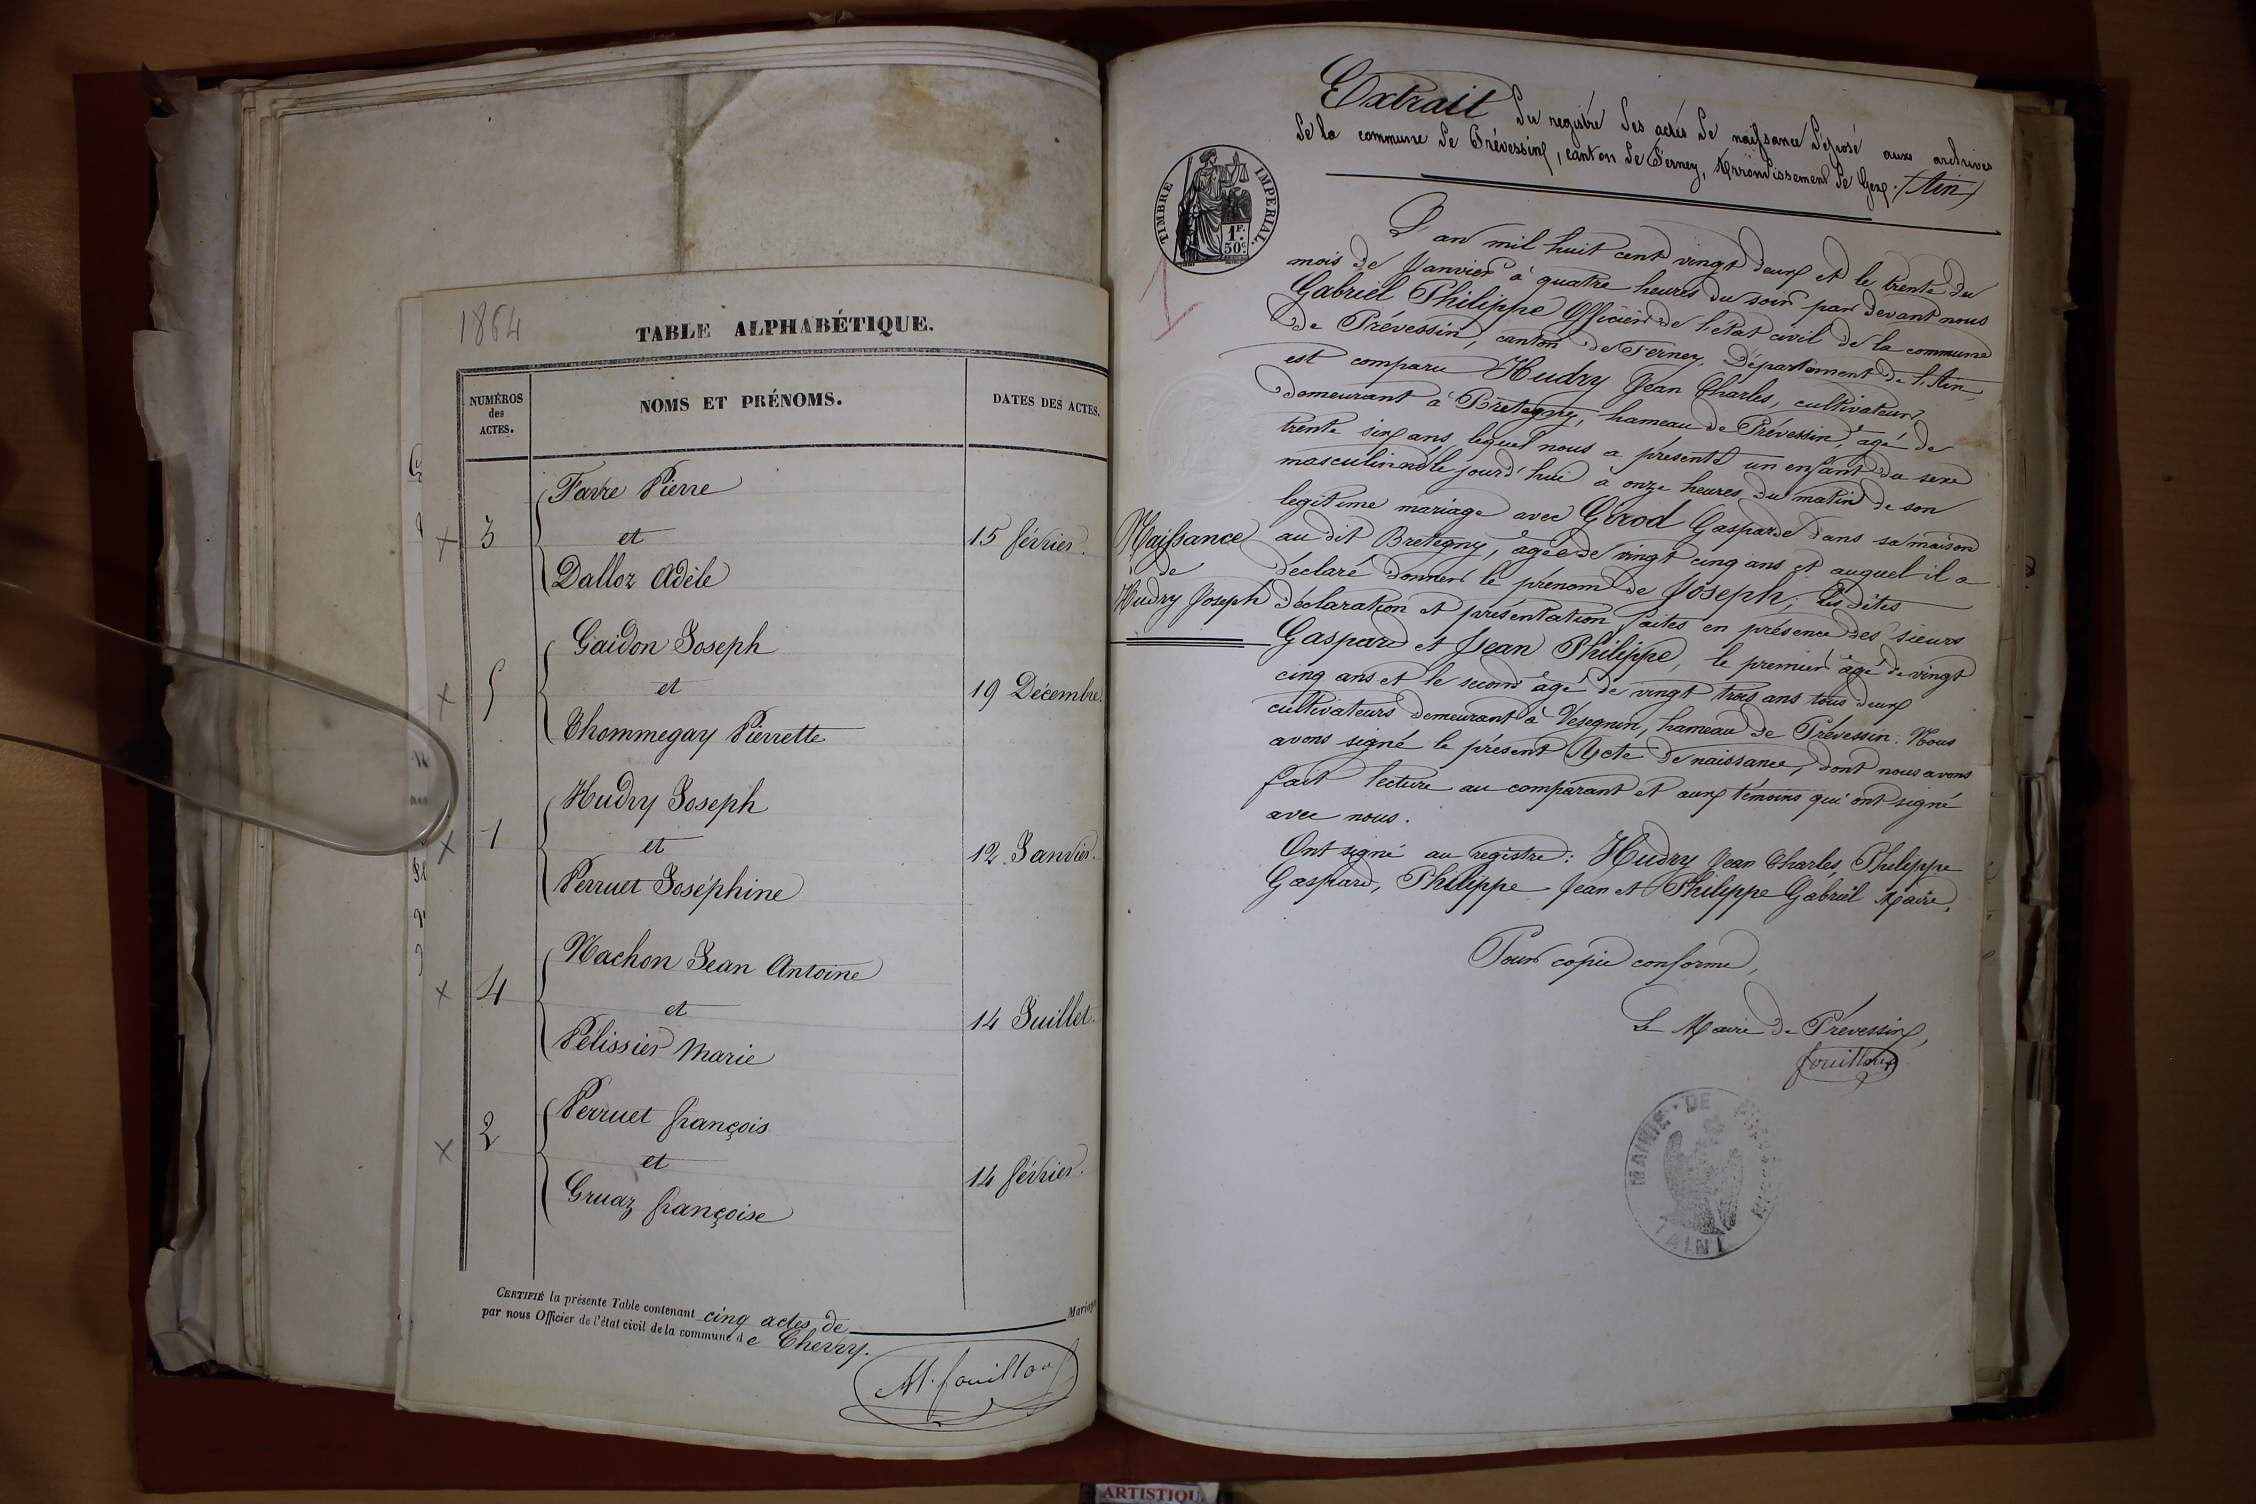 1864
TABLE ALPHABÉTIQUE.
NUMÉROS
des
ACTES.
NOMS ET PRÉNOMS.
DATES DES ACTES.
Favre Pierre
× 3 et 15 février.
Dalloz Adèle
Gaidon Joseph
× 5 et 19 Décembre.
Chommegay Pierrette
Hudry Joseph
× 1 et 12 Janvier.
Perruet Joséphine
Nachon Jean Antoine
× 4 et 14 Juillet.
Pélissier Marie
Perruet françois
× 2 et 14 février.
Gruaz françoise
CERTIFIÉ la présente Table contenant cinq actes de Mariage
par nous Officier de l'état civil de la commune de Chevry.
M. fouilloux
Extrait du registre des actes de naissance déposé aux archives
de la commune de Prévessin, canton de Ferney, Arrondissement de Gex. (Ain)
TIMBRE IMPERIAL.
1F.
50c.
1
L'an mil huit cent vingt deux et le trente du
mois de Janvier à quatre heures du soir par devant nous
Gabriel Philippe Officier de l'état civil de la commune
de Prévessin, canton de Ferney, Département de l'Ain,
est comparu Hudry Jean Charles, cultivateur,
domeurant à Brétegny, hameau de Prévessin, âgé de
trente six ans, lequel nous a présenté un enfant du sexe
masculin né le jourd'hui à onze heures du matin de son
legitime mariage avec Girod Gasparde dans sa maison
au dit Bretegny, âgée de vingt cinq ans et auquel il a
déclaré donner le prénom de Joseph; les dites
déclaration et présentation faites en présence des sieurs
Gaspard et Jean Philippe, le premier âgé de vingt
cinq ans et le second âgé de vingt trois ans tous deux
cultivateurs demeurant à Vesegnin, hameau de Prévessin. Nous
avons signé le présent Acte de naissance, dont nous avons
fait lecture au comparant et aux témoins qui ont signé
avec nous.
Ont signé au registre: Hudry Jean Charles, Philippe
Gaspard, Philippe Jean et Philippe Gabriel Maire.
Naissance
de
Hudry Joseph
Pour copie conforme,
Le Maire de Prévessin,
fouilloux
MAIRIE DE
(AIN)
ARTISTIQU